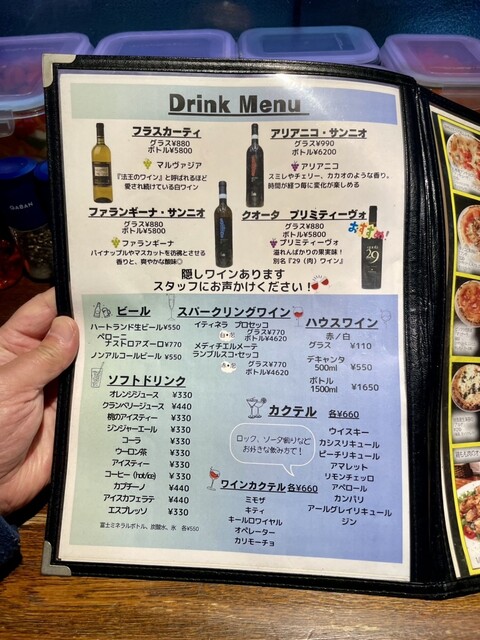 Drink Menu
フラスカーティ
グラス¥880
ボトル¥5800
マルヴァジア
『法王のワイン』と呼ばれるほど
愛され続けている白ワイン
アリアニコ・サンニオ
グラス¥990
ボトル¥6200
アリアニコ
スミレやチェリー、カカオのような香り。
時間が経つ毎に変化が楽しめる
ファランギーナ・サンニオ
グラス¥880
ボトル¥5800
ファランギーナ
パイナップルやマスカットを彷彿とさせる
香りと、爽やかな酸味◎
クオータ プリミティーヴォ
グラス¥880
ボトル¥5800
おすすめ!
プリミティーヴォ
溢れんばかりの果実味!
別名『29(肉)ワイン』
29
隠しワインあります
スタッフにお声かけください!
ビール
ハートランド生ビール¥550
ペローニ
ナストロアズーロ¥770
ノンアルコールビール ¥550
スパークリングワイン
イティネラ プロセッコ
白・泡
グラス¥770
ボトル¥4620
メディチエルメーテ
ランブルスコ・セッコ
赤・泡
グラス¥770
ボトル¥4620
ハウスワイン
赤/白
グラス ¥110
デキャンタ
500ml ¥550
ボトル
1500ml ¥1650
ソフトドリンク
オレンジジュース ¥330
クランベリージュース ¥440
桃のアイスティー ¥330
ジンジャーエール ¥330
コーラ ¥330
ウーロン茶 ¥330
アイスティー ¥330
コーヒー (hot/ice) ¥330
カプチーノ ¥440
アイスカフェラテ ¥440
エスプレッソ ¥330
富士ミネラルボトル、炭酸水、氷 各¥550
カクテル 各¥660
ロック、ソーダ割りなど
お好きな飲み方で!
ウイスキー
カシスリキュール
ピーチリキュール
アマレット
リモンチェッロ
アペロール
カンパリ
アールグレイリキュール
ジン
ワインカクテル 各¥660
ミモザ
キティ
キールロワイヤル
オペレーター
カリモーチョ
GABAN